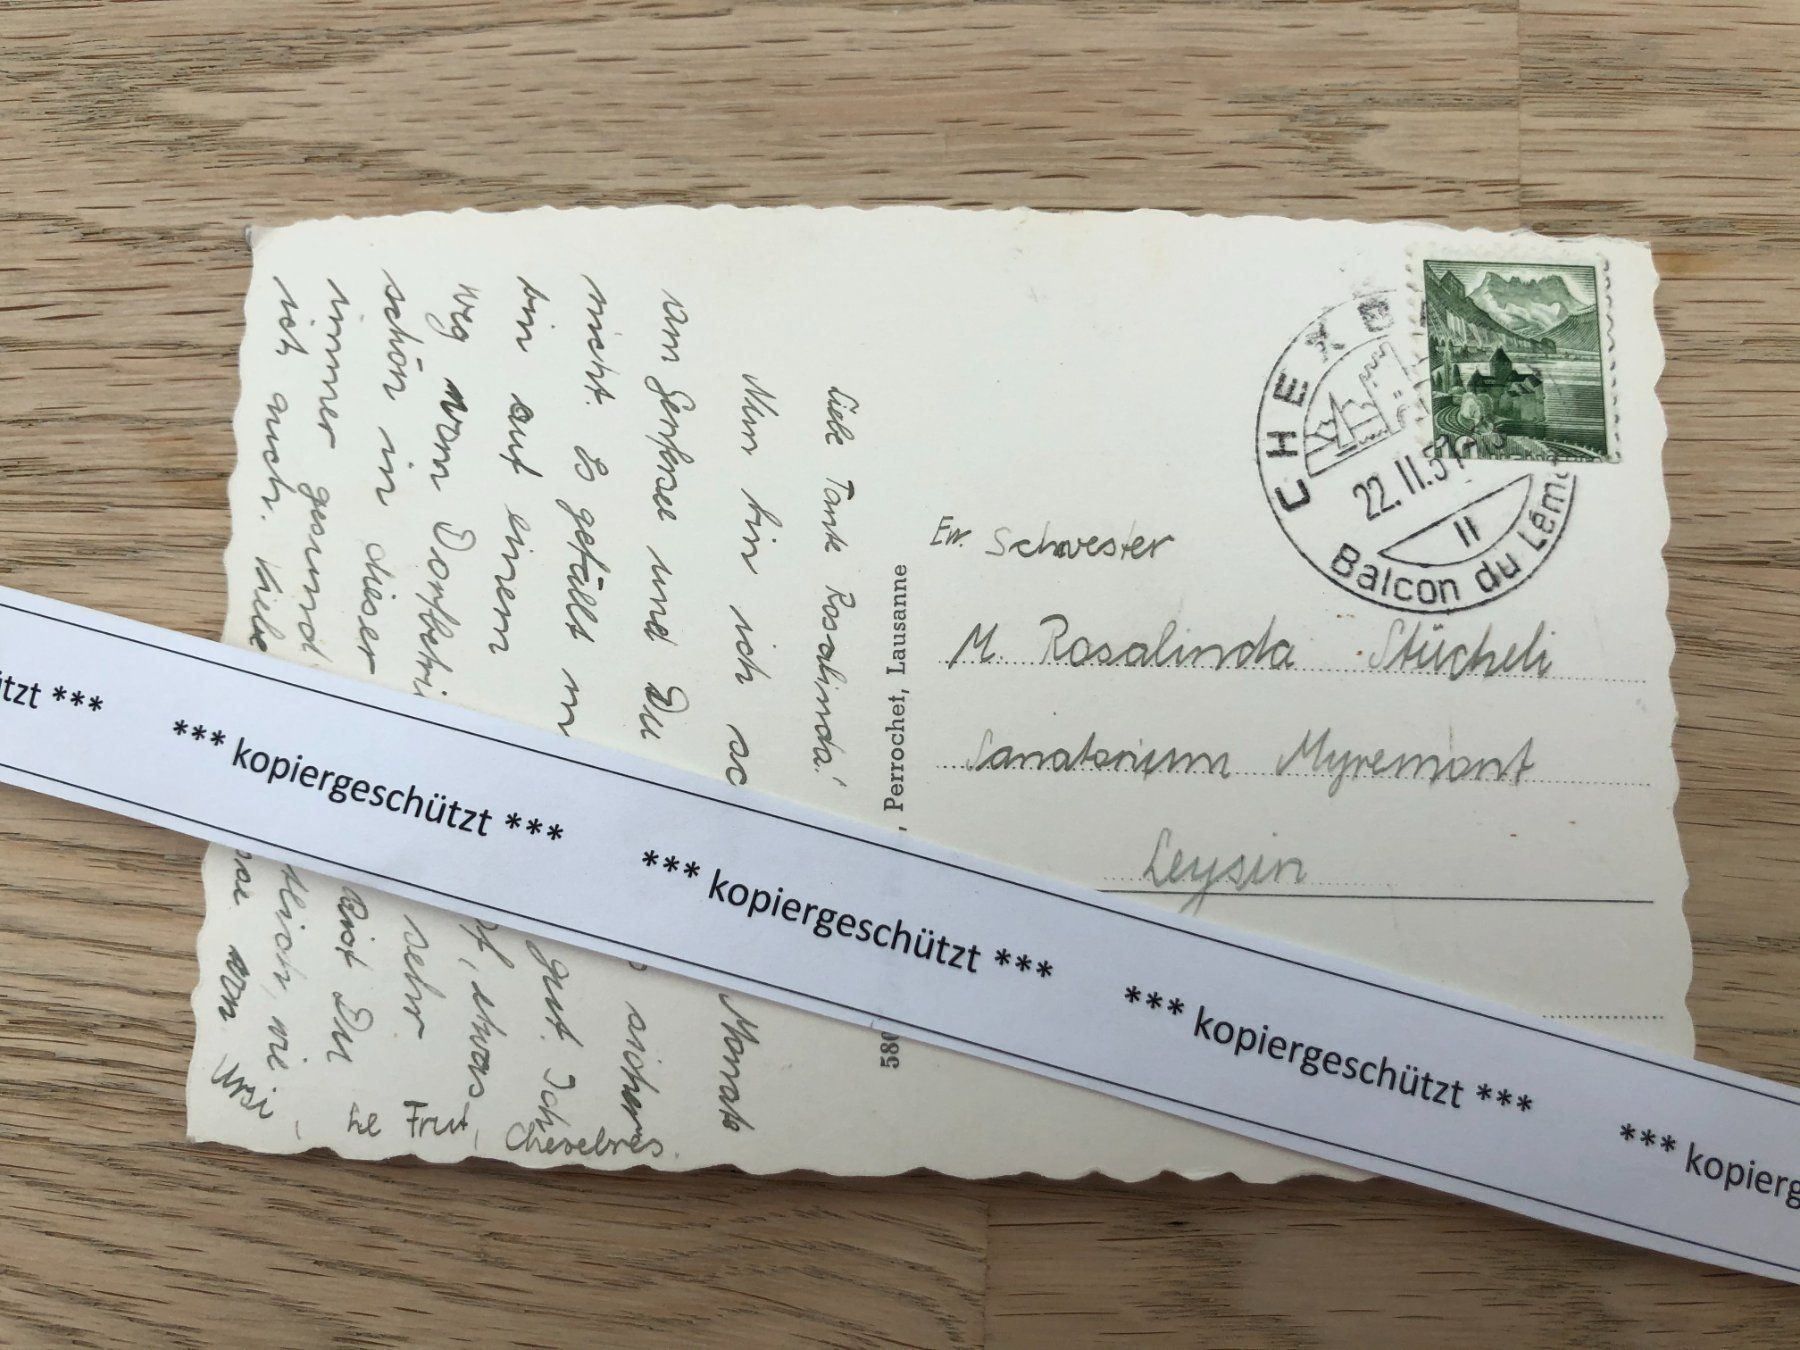 Liebe Tante Rosalinda!
Nun bin ich sc Monate
am Genfersee und Du sicher
nicht. Es gefällt m gut. Ich
bin auf einem f, etwas
weg vom Dorfbetri
schön in dieser sehr
immer gesund Bist Du
ich auch. Liebe tlich, wie
sse von Ursi
Le Frut, Chexebres.
Perrochet, Lausanne
580
Ew. Schwester
M. Rosalinda Stücheli
Sanatorium Myremont
Leysin
CHEXB
22.II.51
II
Balcon du Lém
10
ützt ***
*** kopiergeschützt ***
*** kopiergeschützt ***
*** kopiergeschützt ***
*** kopierg